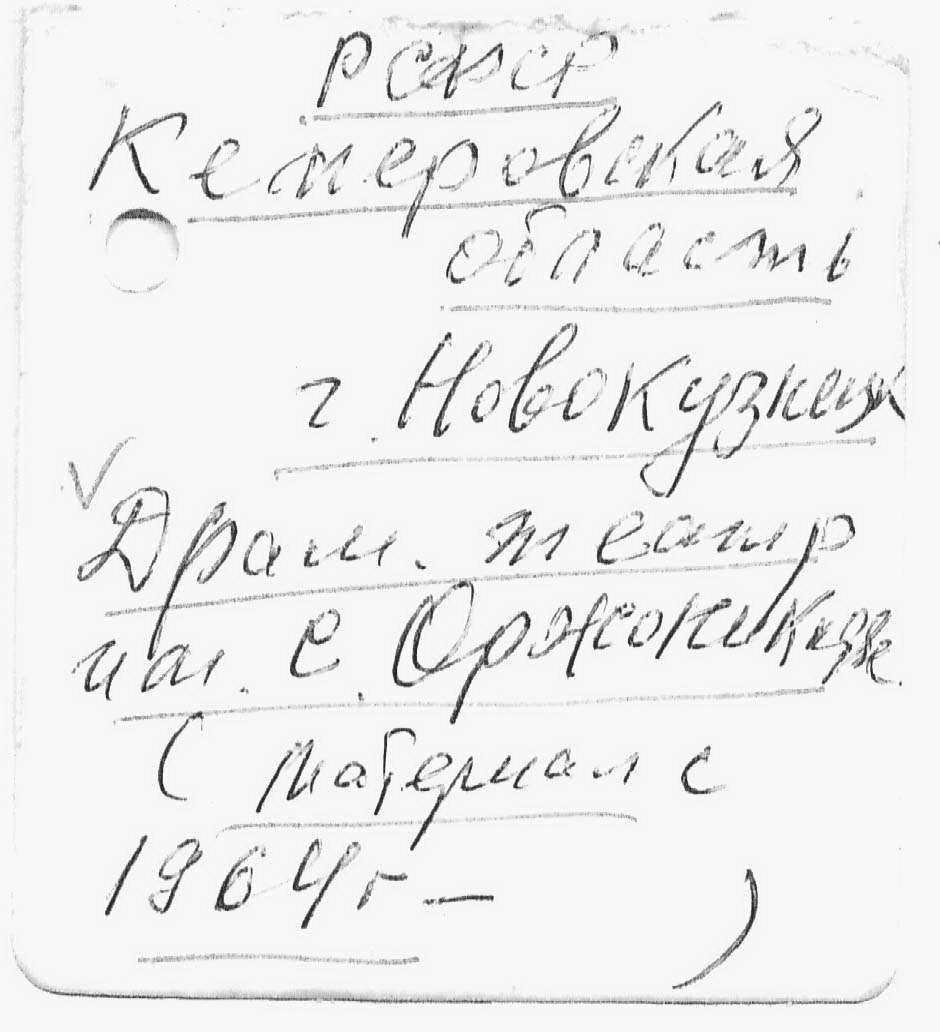 РСФСР
Кемеровская
область
г. Новокузнецк
Драм. театр
им. С. Орджоникидзе
(материал с
1964г — )